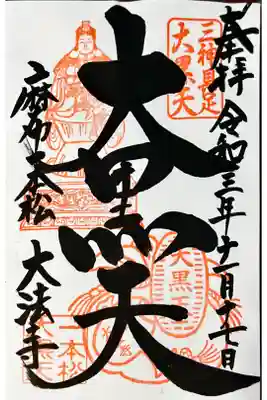 奉拝 令和三年十一月十七日
三神具足
大黒天
大黒天
大黒天
麻布一本松 大法寺
一本松